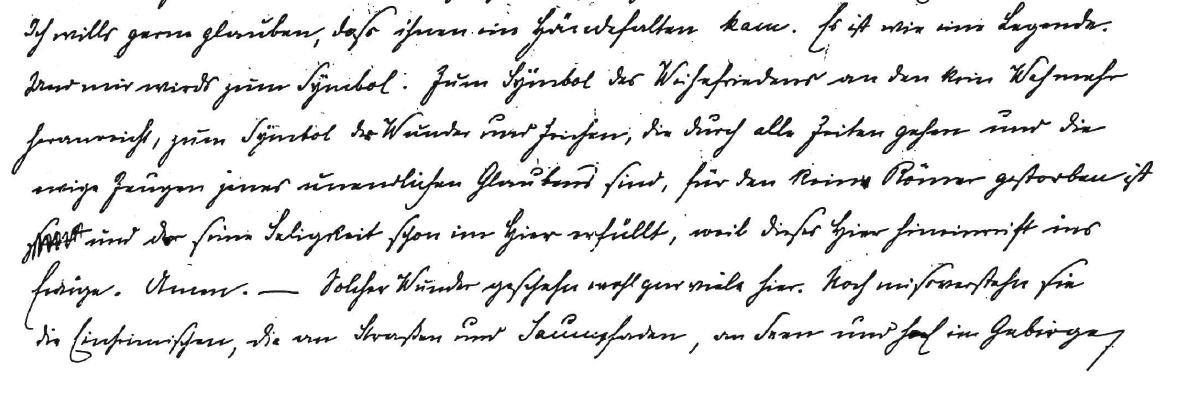 Ich wills gerne glauben, dass ihnen ein Händefalten kam. Es ist wie eine Legende.
Und mir wirds zum Sÿmbol. Zum Sÿmbol des Weihefriedens an den kein Weh mehr
heranreicht, zum Sÿmbol der Wunder und Zeichen, die durch alle Zeiten gehen und die
ewige Zeugen jenes unendlichen Glaubens sind, für den keiner Römer gestorben ist
und der seine Seligkeit schon im Hier erfüllt, weil dieses Hier hineinreift ins
Ewige. Amen. — Solcher Wunder geschehn wohl gar viele hier. Noch missverstehn sie
die Einheimischen, die an Straßen und Saumpfaden, an Seen und hoch im Gebirge,